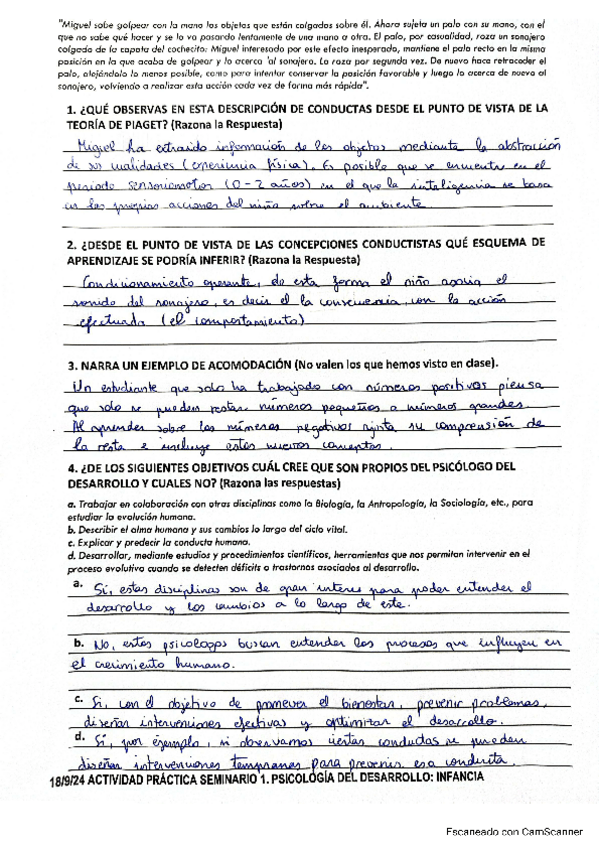 "Miguel sabe golpear con la mano los objetos que están colgados sobre él. Ahora sujeta un palo con su mano, con el
que no sabe qué hacer y se lo va pasando lentamente de una mano a otra. El palo, por casualidad, roza un sonajero
colgado de la capota del cochecito: Miguel interesado por este efecto inesperado, mantiene el palo recto en la misma
posición en la que acaba de golpear y lo acerca 'al sonajero. La roza por segunda vez. De nuevo hace retroceder el
palo, alejándolo lo menos posible, como para intentar conservar la posición favorable y luego lo acerca de nuevo al
sonajero, volviendo a realizar esta acción cada vez de forma más rápida".
1. ¿QUÉ OBSERVAS EN ESTA DESCRIPCIÓN DE CONDUCTAS DESDE EL PUNTO DE VISTA DE LA
TEORÍA DE PIAGET? (Razona la Respuesta)
Miguel ha extraído información de los objetos mediante la abstracción
de sus cualidades (experiencia física). Es posible que se encuentre en el
periodo sensoriomotor (0-2 años) en el que la inteligencia se basa
en las propias acciones del niño sobre el ambiente
2. ¿DESDE EL PUNTO DE VISTA DE LAS CONCEPCIONES CONDUCTISTAS QUÉ ESQUEMA DE
APRENDIZAJE SE PODRÍA INFERIR? (Razona la Respuesta)
Condicionamiento operante, de esta forma el niño asocia el
sonido del sonajero, es decir el la consecuencia, con la acción
efectuada (el comportamiento)
3. NARRA UN EJEMPLO DE ACOMODACIÓN (No valen los que hemos visto en clase).
Un estudiante que solo ha trabajado con números positivos piensa
que solo se pueden restar números pequeños a números grandes.
Al aprender sobre los números negativos ajusta su comprensión de
la resta e incluye estos nuevos conceptos.
4. ¿DE LOS SIGUIENTES OBJETIVOS CUÁL CREE QUE SON PROPIOS DEL PSICÓLOGO DEL
DESARROLLO Y CUALES NO? (Razona las respuestas)
a. Trabajar en colaboración con otras disciplinas como la Biología, la Antropología, la Sociología, etc., para
estudiar la evolución humana.
b. Describir el alma humana y sus cambios lo largo del ciclo vital.
c. Explicar y predecir la conducta humana.
d. Desarrollar, mediante estudios y procedimientos científicos, herramientas que nos permitan intervenir en el
proceso evolutivo cuando se detecten déficits o trastornos asociados al desarrollo.
a. Sí, estas disciplinas son de gran interés para poder entender el
desarrollo y los cambios a lo largo de este.
b. No, estos psicólogos buscan entender los procesos que influyen en
el crecimiento humano.
c. Si, con el objetivo de promover el bienestar, prevenir problemas,
diseñar intervenciones efectivas y optimizar el desarrollo.
d. Sí, por ejemplo, si observamos ciertas conductas se pueden
diseñar intervenciones tempranas para prevenir esa conducta.
18/9/24 ACTIVIDAD PRÁCTICA SEMINARIO 1. PSICOLOGÍA DEL DESARROLLO: INFANCIA
Escaneado con CamScanner